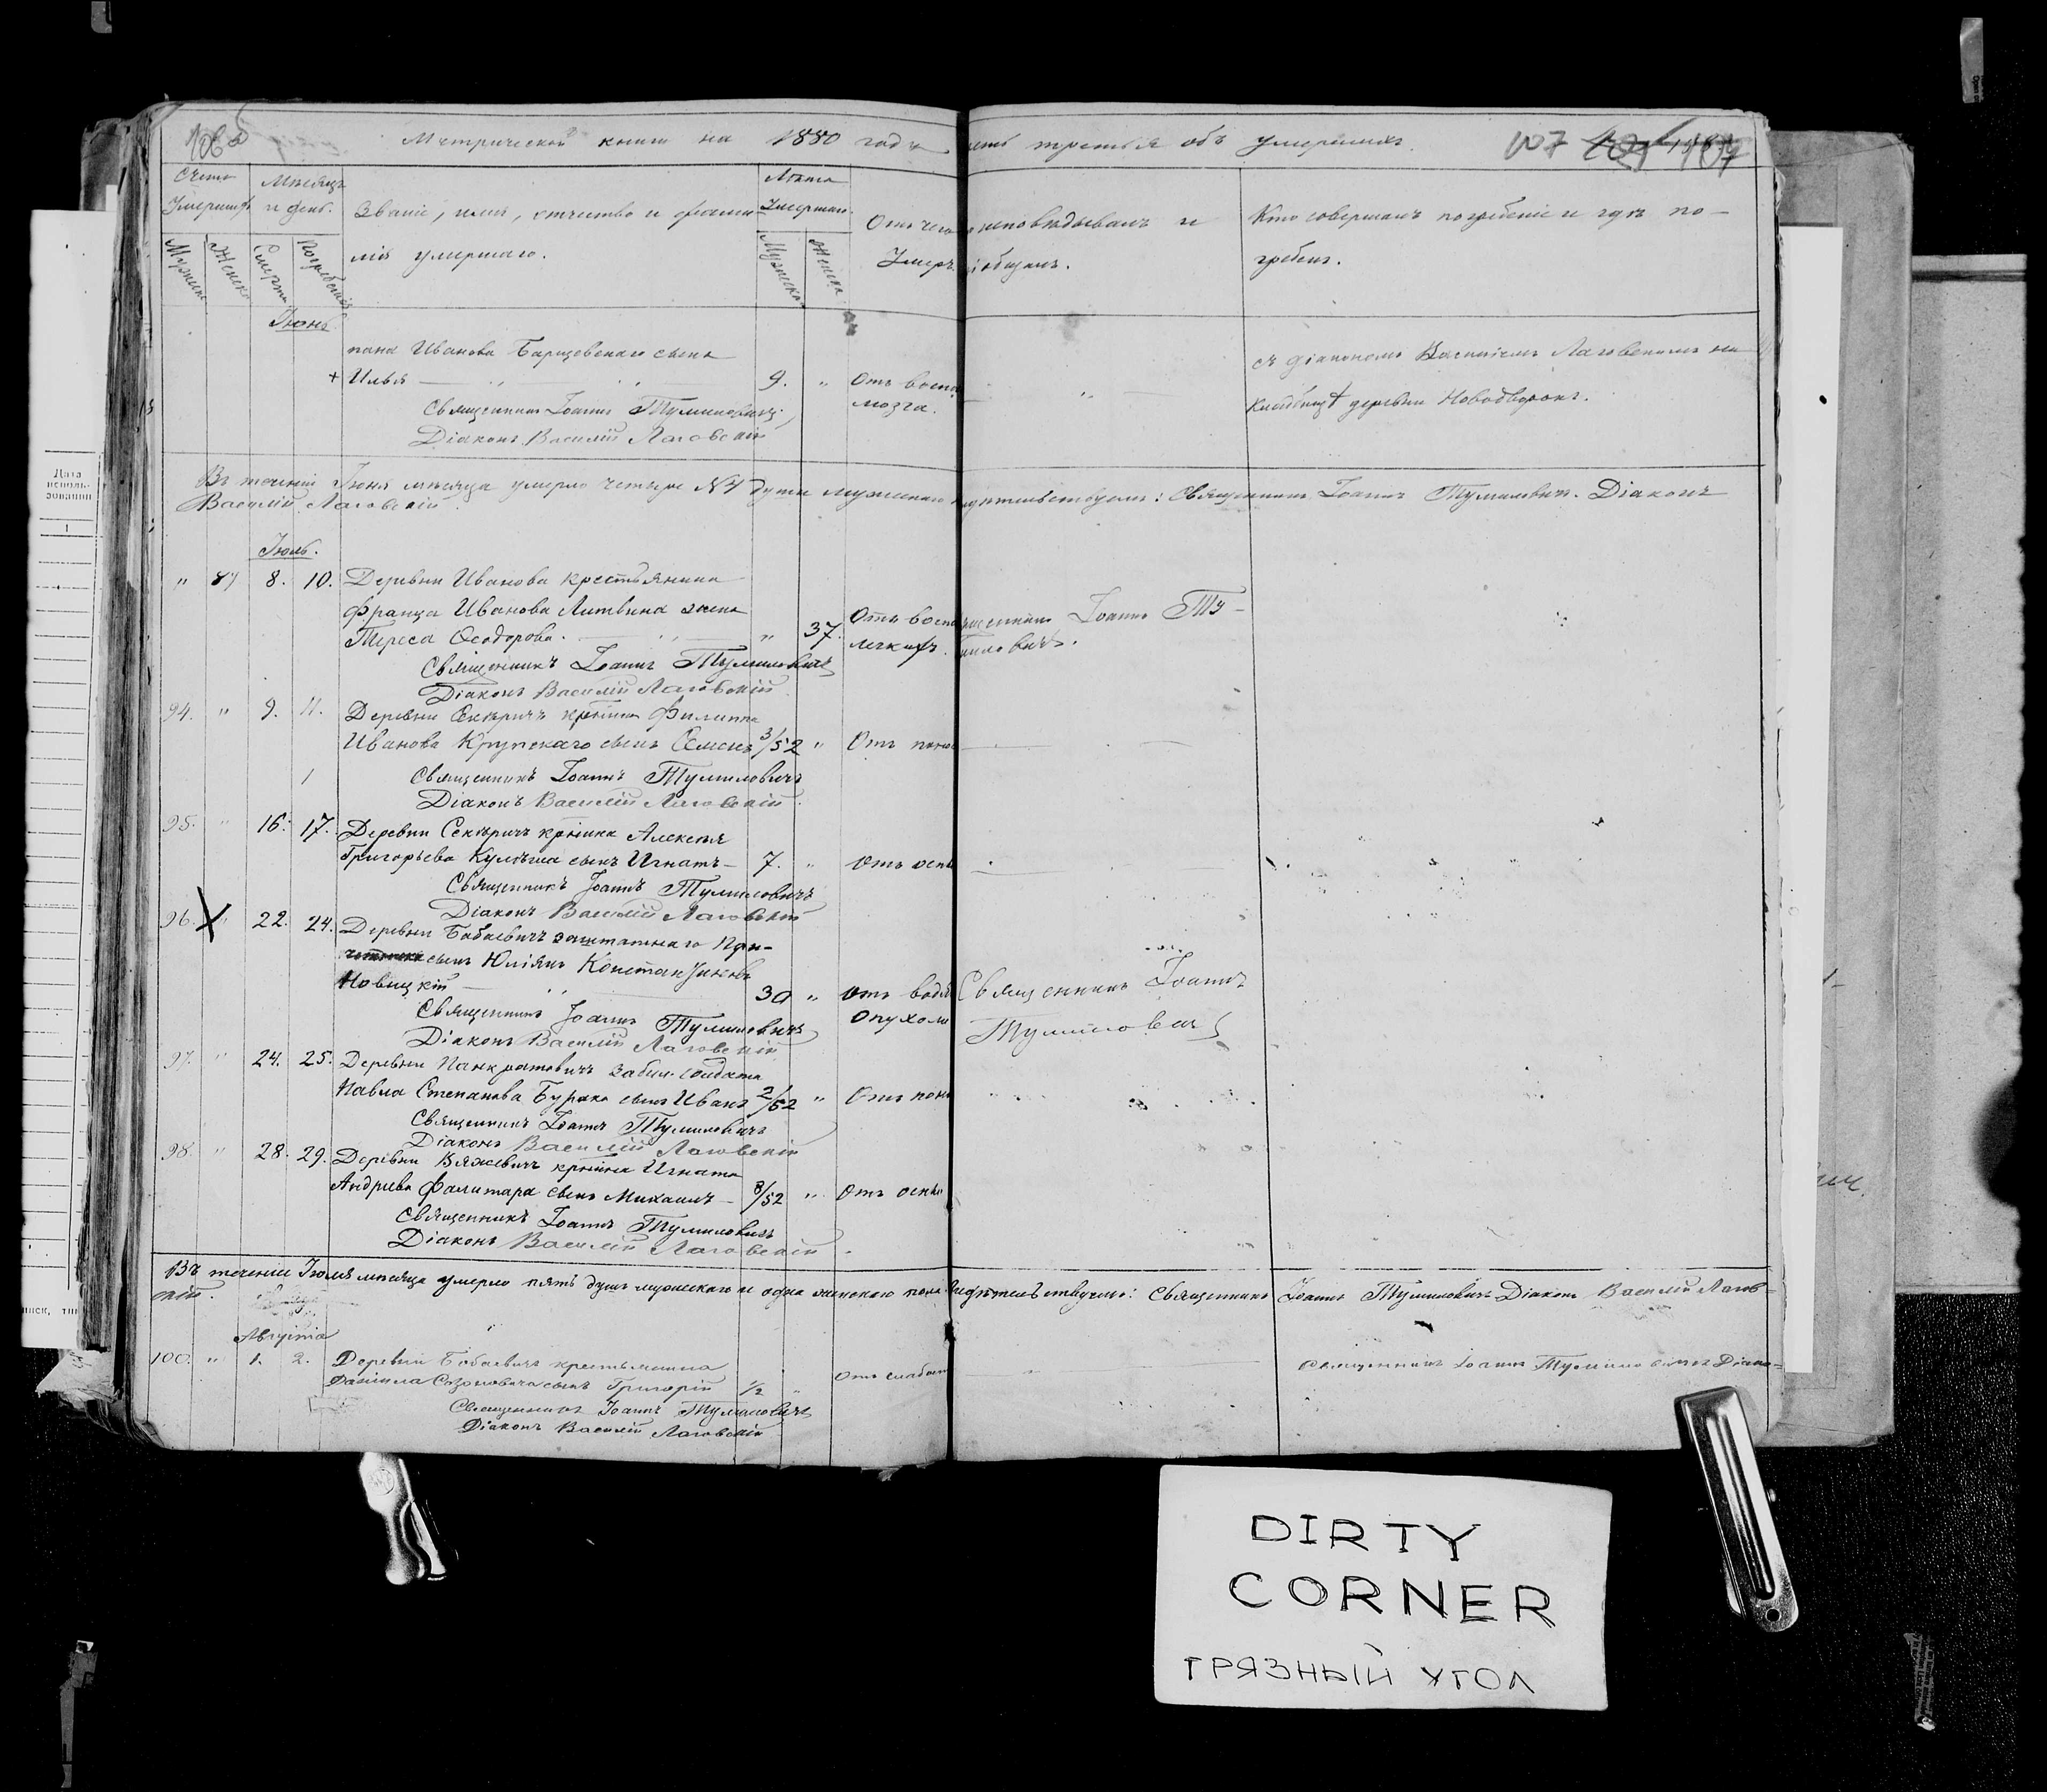 Метрической книги на 1880 годъ часть третья объ умершихъ.
107
Счетъ Умершихъ
Мѣсяцъ и день.
Званіе, имя, отчество и фами-
лія умершаго.
Лѣта Умершаго.
Отъ чего
Умеръ.
исповѣдывалъ и
пріобщалъ.
Кто совершалъ погребеніе и гдѣ по-
гребенъ.
Мужеска
Женска
Смерти
Погребенія
Мужеска
Женска
Іюнь
Иванова Барщевскаго сынъ
Илья 9. " Отъ восп.
мозга.
съ діакономъ Василіемъ Лаговскимъ на
кладбищѣ деревни Новодворокъ.
Священникъ Іоаннъ Тумиловичъ
Діаконъ Василій Лаговскій
Въ теченіи Іюня мѣсяца умерло четыре №4 души мужескаго свидѣтельствуемъ: Священникъ Іоаннъ Тумиловичъ. Діаконъ
Василій Лаговскій.
Іюль.
" 87 8. 10. Деревни Иванова крестьянина
Франца Иванова Литвина жена
Тереса Ѳеодорова. " 37. Отъ восп
легкихъ.
Священникъ Іоаннъ Ту-
миловичъ.
Священникъ Іоаннъ Тумиловичъ
Діаконъ Василій Лаговскій
94. " 9. 11. Деревни Секѣричъ крѣнина Филиппа
Иванова Крупскаго сынъ Семенъ 3/52 " Отъ
Священникъ Іоаннъ Тумиловичъ
Діаконъ Василій Лаговскій.
95. " 16. 17. Деревни Секѣричъ крѣнина Алексѣя
Григорьева Кулѣша сынъ Игнатъ 7. " Отъ оспы
Священникъ Іоаннъ Тумиловичъ
Діаконъ Василій Лаговскій
96. " 22. 24. Деревни Бабаевичъ заштатнаго При-
сынъ Юліянъ Константиновъ
Новицкій 30 " Отъ водя
опухоли
Священникъ Іоаннъ
Тумиловичъ
Священникъ Іоаннъ Тумиловичъ
Діаконъ Василій Лаговскій
97. " 24. 25. Деревни Панкратовичъ солдата
Павла Степанова Бурака сынъ Иванъ 2/52 " Отъ
Священникъ Іоаннъ Тумиловичъ
Діаконъ Василій Лаговскій
98. " 28. 29. Деревни Вяжевичъ крѣнина Игната
Андреева Фалитара сынъ Михаилъ 8/52 " Отъ оспы
Священникъ Іоаннъ Тумиловичъ
Діаконъ Василій Лаговскій.
Въ теченіе Іюля мѣсяца умерло пять душъ мужескаго и одна женскаго пола свидѣтельствуемъ: Священникъ Іоаннъ Тумиловичъ Діаконъ Василій Лагов=
скій.
Августа
100. " 1. 2. Деревни Бабаевичъ крестьянина
Даніила Созоновича сынъ Григорій 1/2 " Отъ слабост
Священникъ Іоаннъ Тумиловичъ Діако=
Священникъ Іоаннъ Тумиловичъ
Діаконъ Василій Лаговскій
Дата
исполь-
зования
1
DIRTY
CORNER
ГРЯЗНЫЙ УГОЛ